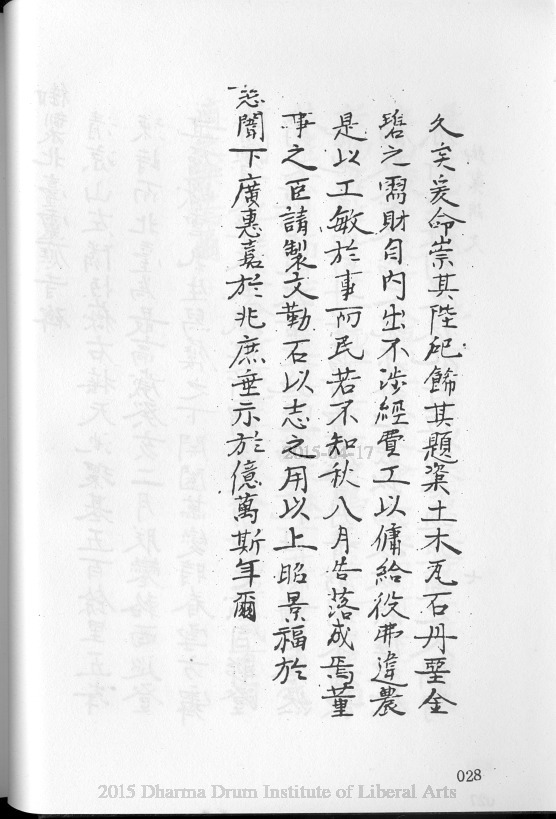 久矣爰命崇其陛戺餙其題㮚土木瓦石丹堊金
碧之需財自内出不涉經費工以傭給役弗違農
是以工敏於事而民若不知秋八月告落成焉董
事之臣請製文勒石以志之用以上昭景福於
慈闈下廣惠嘉於兆庶垂示於億萬斯年爾
2015-04-17
028
2015 Dharma Drum Institute of Liberal Arts